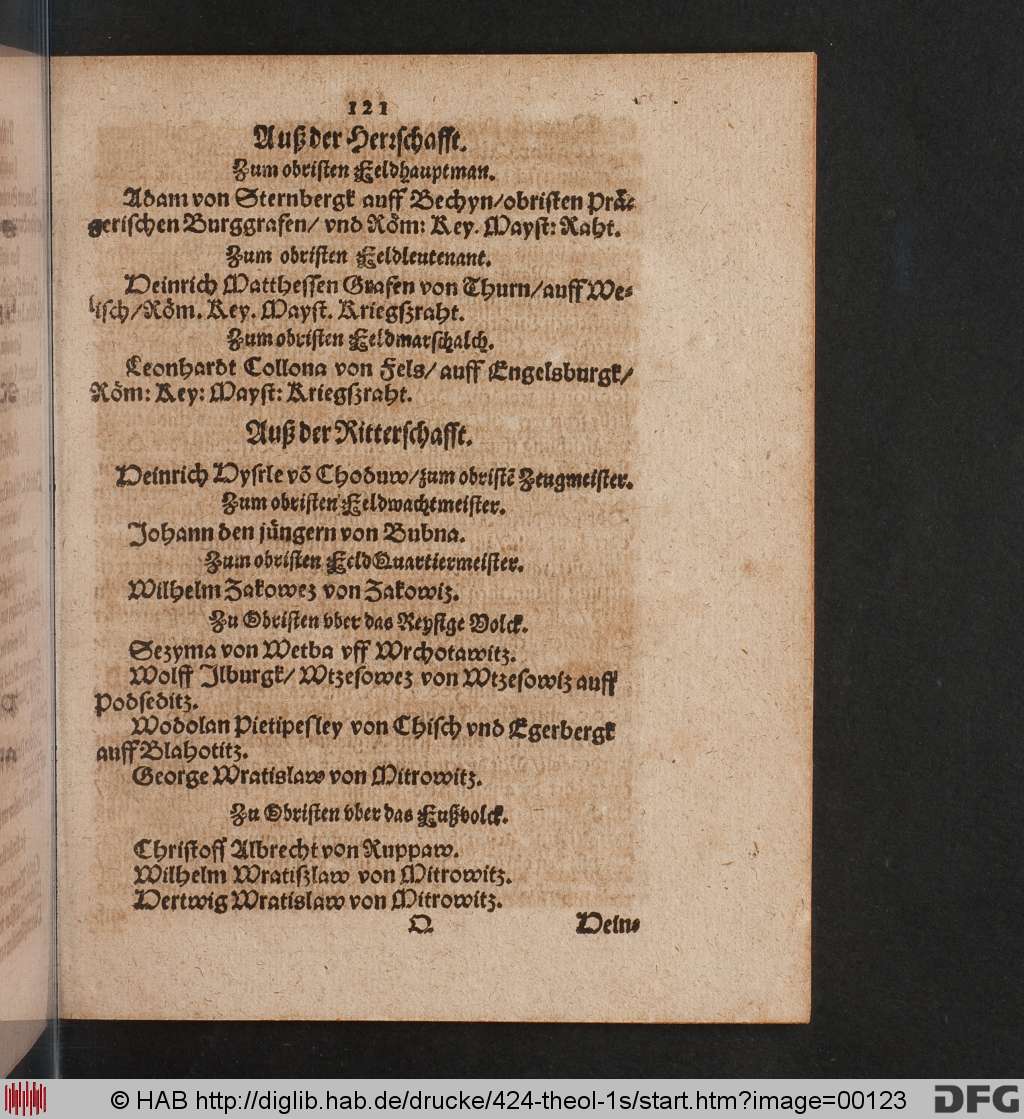 121
Auß der Herrschafft.
Zum obristen Feldhauptman.
Adam von Sternbergk auff Bechyn/obristen Prä-
gerischen Burggrafen/ vnd Röm: Key. Mayst: Raht.
Zum obristen Feldleutenant.
Heinrich Matthessen Grafen von Thurn/auff We-
lisch/Röm. Key. Mayst. Kriegßraht.
Zum obristen Feldmarschalch.
Leonhardt Collona von Fels/ auff Engelsburgk/
Röm: Key: Mayst: Kriegßraht.
Auß der Ritterschafft.
Heinrich Hysrle võ Choduw/zum obristẽ Zeugmeister.
Zum obristen Feldwachtmeister.
Johann den jüngern von Bubna.
Zum obristen FeldQuartiermeister.
Wilhelm Zakowez von Zakowiz.
Zu Obristen vber das Reysige Volck.
Sezyma von Wetba vff Wrchotawitz.
Wolff Ilburgk/ Wtzesowez von Wtzesowiz auff
Podseditz.
Wodolan Pietipesley von Chisch vnd Egerbergk
auff Blahotitz.
George Wratislaw von Mitrowitz.
Zu Obristen vber das Fußvolck.
Christoff Albrecht von Ruppaw.
Wilhelm Wratißlaw von Mitrowitz.
Hertwig Wratislaw von Mitrowitz.
Q Hein-
© HAB http://diglib.hab.de/drucke/424-theol-1s/start.htm?image=00123 DFG